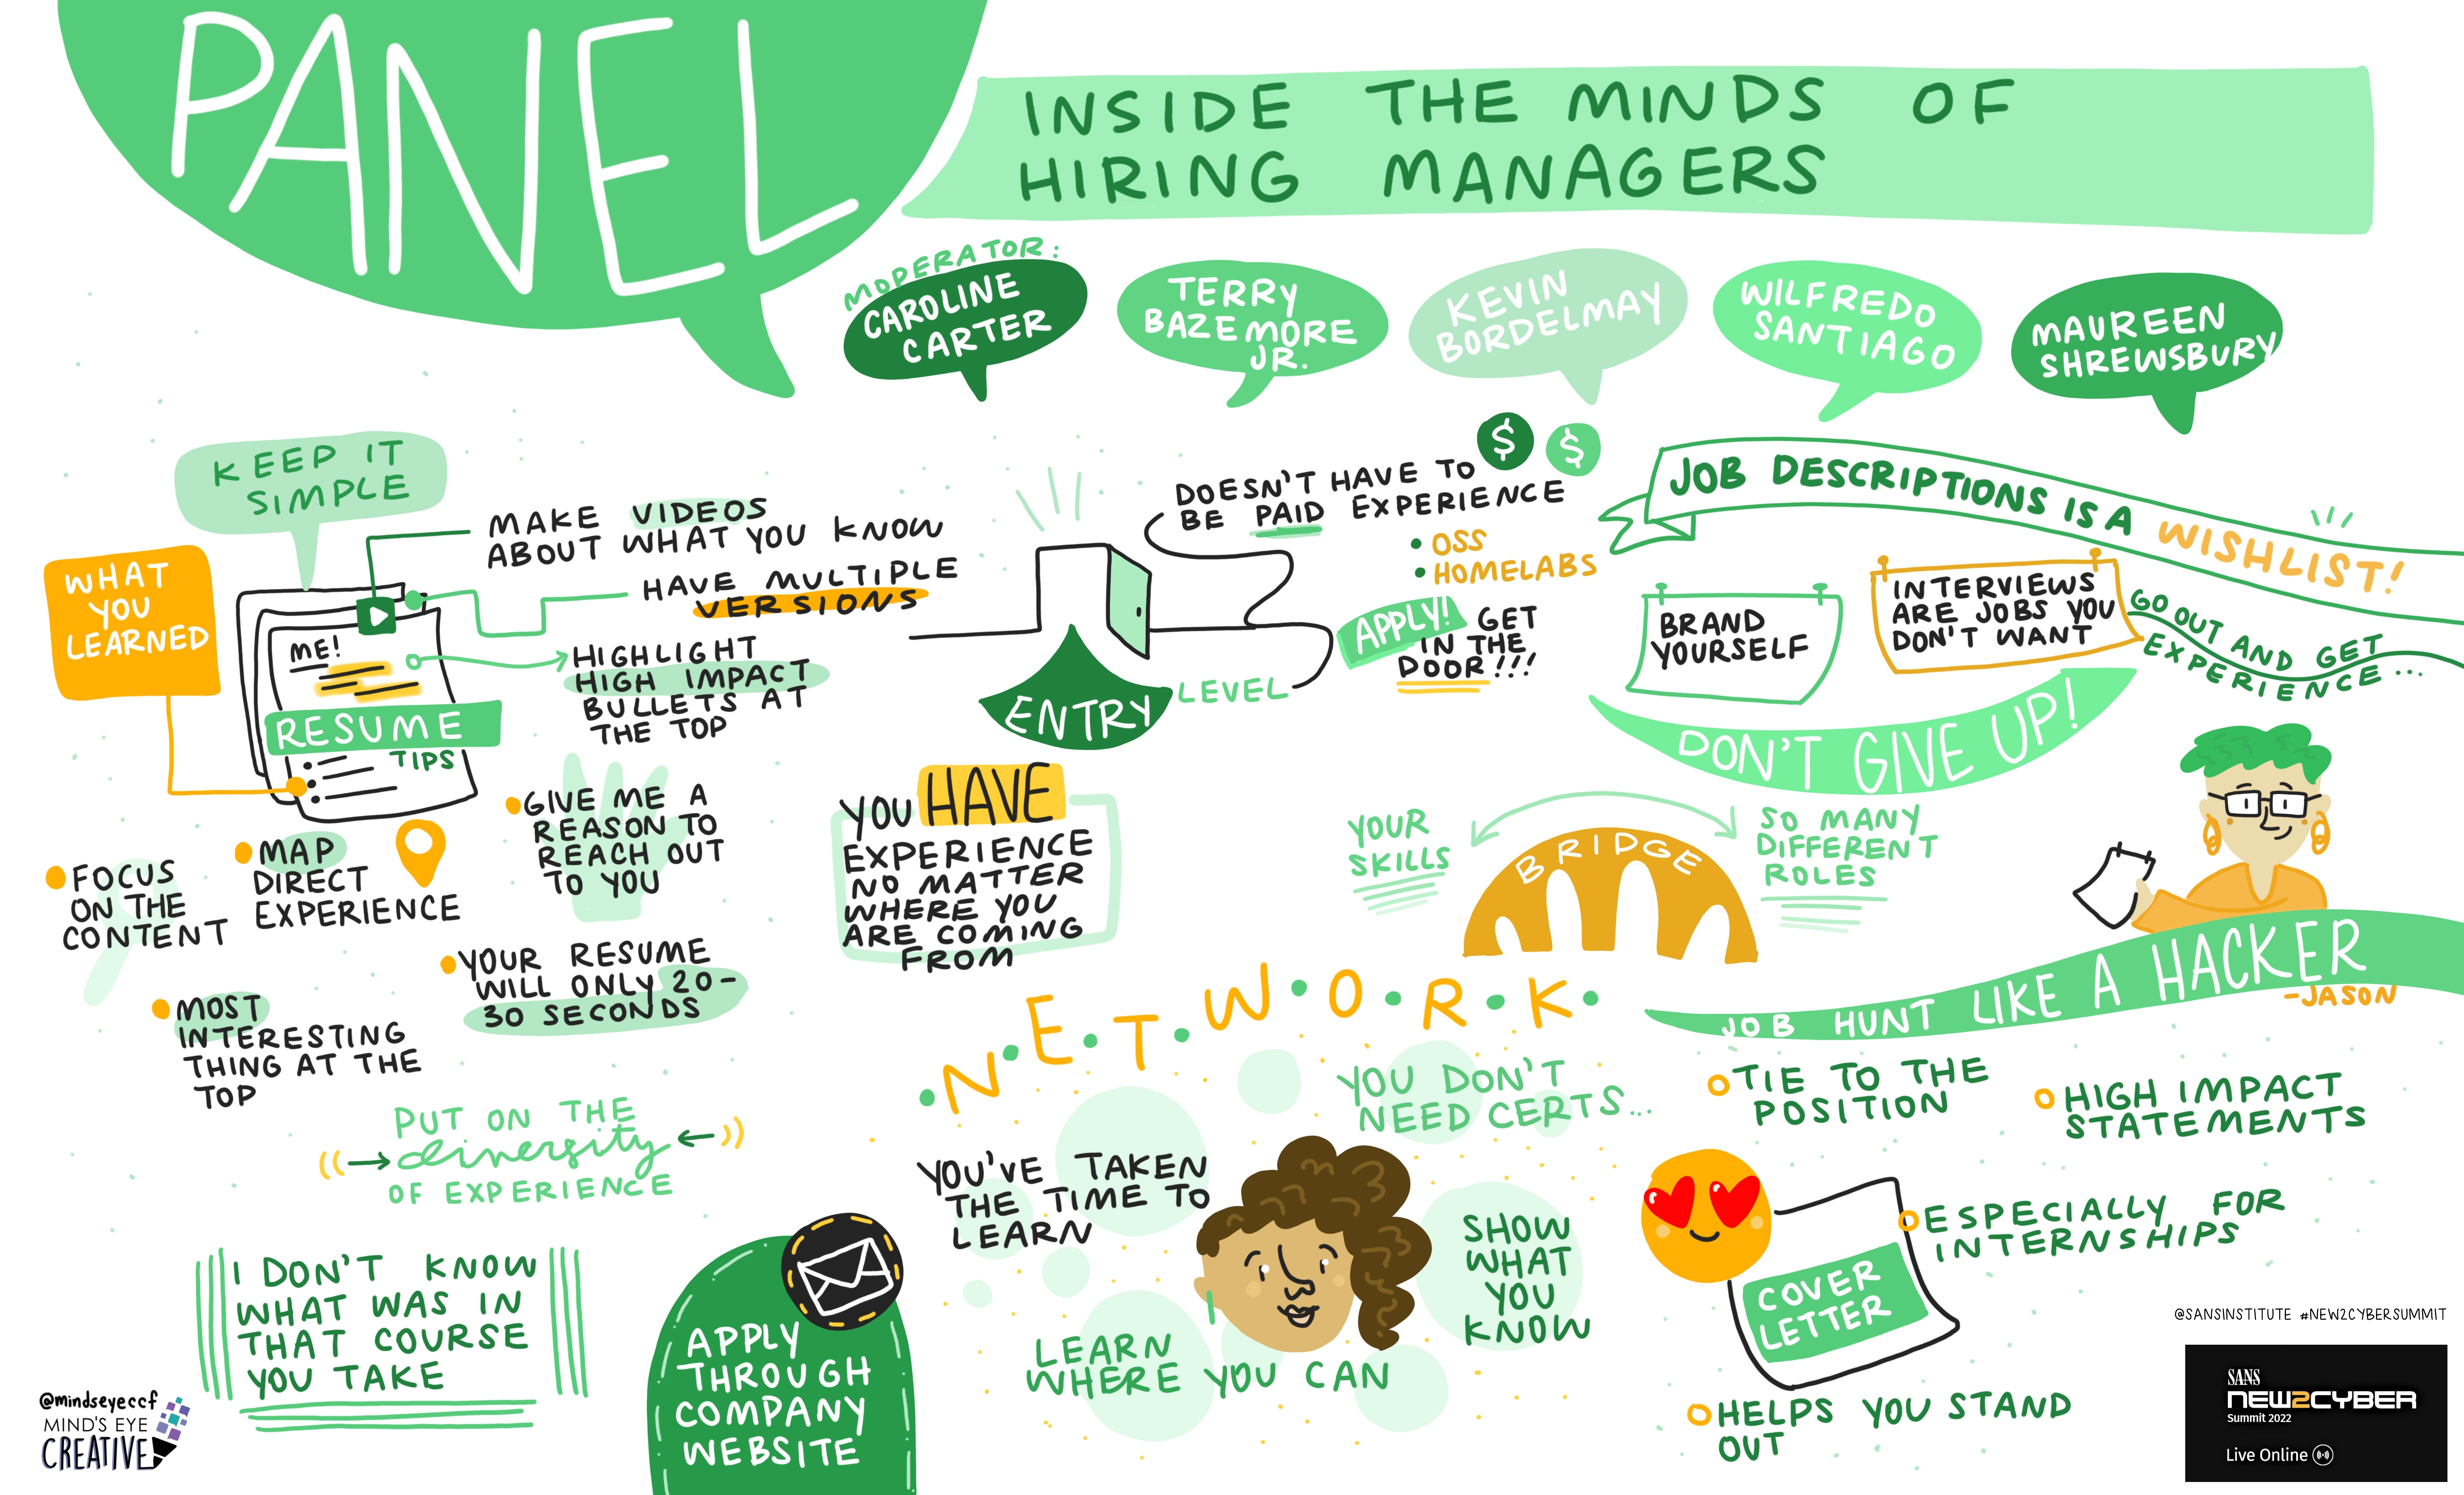 PANEL
INSIDE THE MINDS OF
HIRING MANAGERS
MODERATOR:
CAROLINE
CARTER
TERRY
BAZEMORE
JR.
KEVIN
BORDELMAY
WILFREDO
SANTIAGO
MAUREEN
SHREWSBURY
KEEP IT
SIMPLE
WHAT
YOU
LEARNED
MAKE VIDEOS
ABOUT WHAT YOU KNOW
HAVE MULTIPLE
VERSIONS
ME!
HIGHLIGHT
HIGH IMPACT
BULLETS AT
THE TOP
RESUME
TIPS
FOCUS
ON THE
CONTENT
MAP
DIRECT
EXPERIENCE
GIVE ME A
REASON TO
REACH OUT
TO YOU
MOST
INTERESTING
THING AT THE
TOP
YOUR RESUME
WILL ONLY 20-
30 SECONDS
PUT ON THE
diversity
OF EXPERIENCE
I DON'T KNOW
WHAT WAS IN
THAT COURSE
YOU TAKE
APPLY
THROUGH
COMPANY
WEBSITE
DOESN'T HAVE TO
BE PAID EXPERIENCE
$ $
• OSS
• HOMELABS
APPLY! GET
IN THE
DOOR!!!
ENTRY LEVEL
YOU HAVE
EXPERIENCE
NO MATTER
WHERE YOU
ARE COMING
FROM
JOB DESCRIPTIONS IS A WISHLIST!
BRAND
YOURSELF
INTERVIEWS
ARE JOBS YOU
DON'T WANT
GO OUT AND GET
EXPERIENCE...
DON'T GIVE UP!
YOUR
SKILLS
BRIDGE
SO MANY
DIFFERENT
ROLES
JOB HUNT LIKE A HACKER
-JASON
•N•E•T•W•O•R•K•
YOU DON'T
NEED CERTS...
YOU'VE TAKEN
THE TIME TO
LEARN
SHOW
WHAT
YOU
KNOW
LEARN
WHERE YOU CAN
TIE TO THE
POSITION
HIGH IMPACT
STATEMENTS
ESPECIALLY FOR
INTERNSHIPS
COVER
LETTER
HELPS YOU STAND
OUT
@SANSINSTITUTE #NEW2CYBERSUMMIT
SANS
NEW2CYBER
Summit 2022
Live Online
@mindseyeccf
MIND'S EYE
CREATIVE